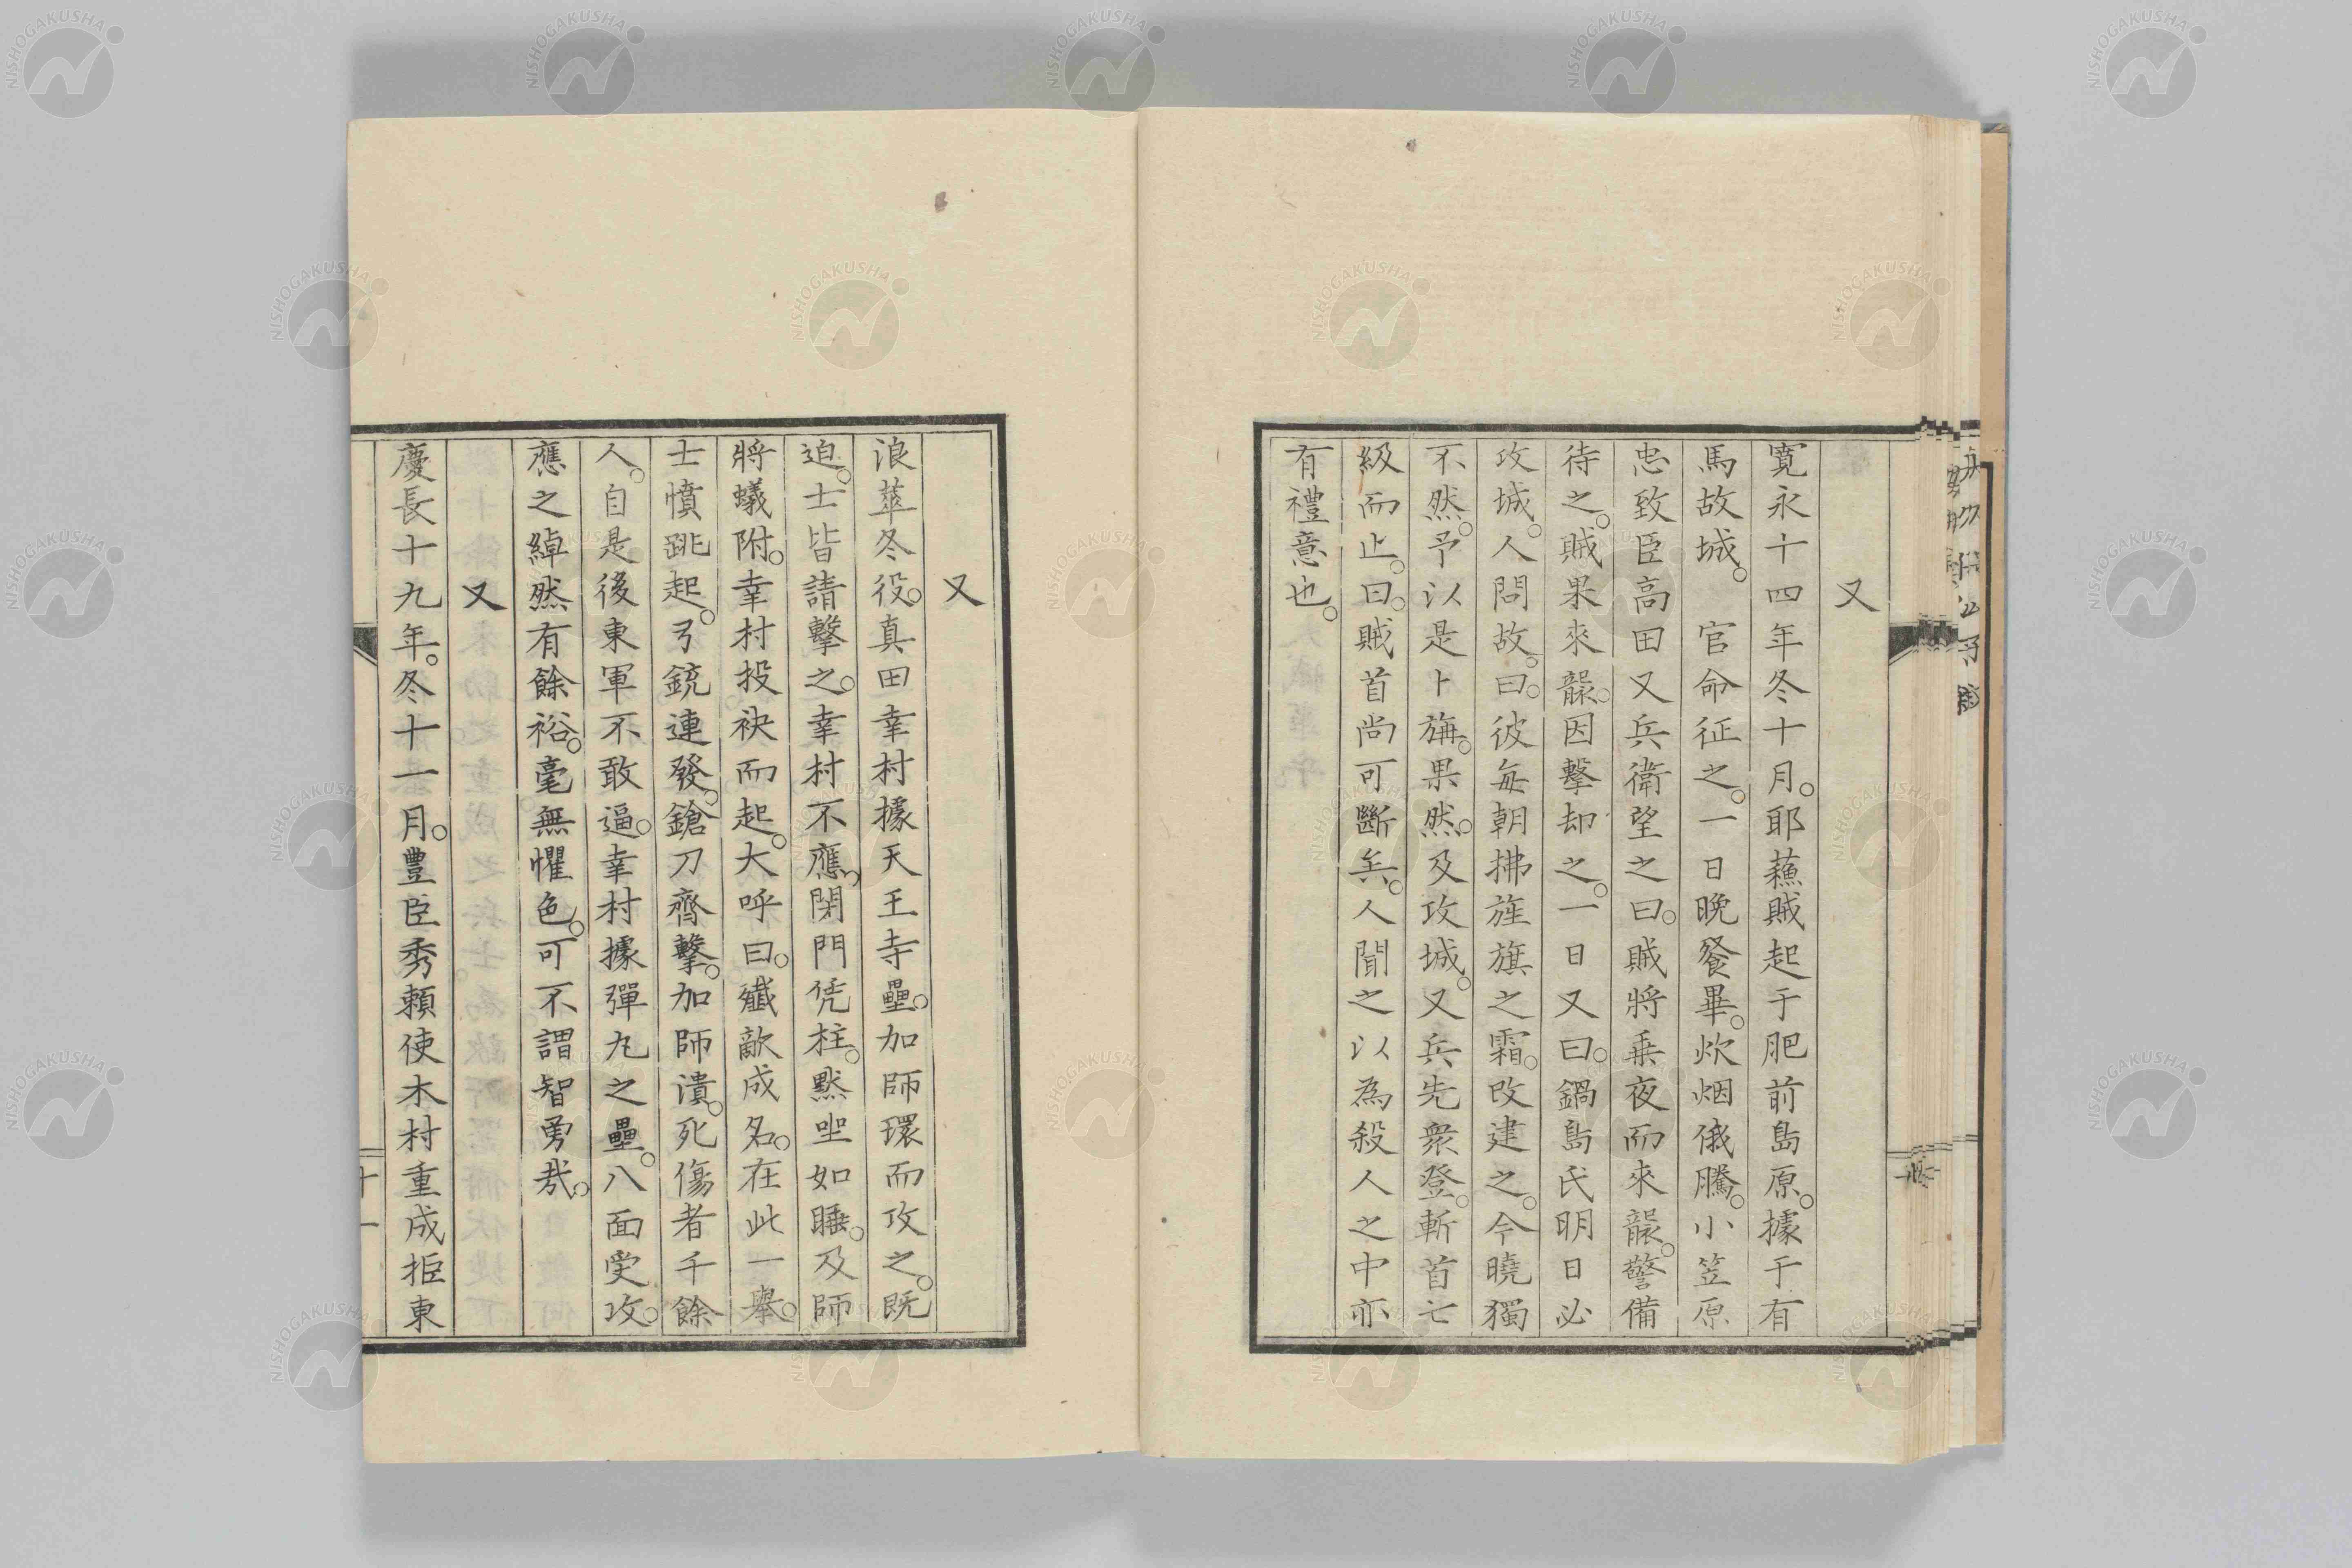 又
寛永十四年冬十月。耶蘓賊起于肥前島原。據于有
馬故城。官命征之。一日晩餐畢。炊烟俄騰。小笠原
忠致臣高田又兵衛望之曰。賊將乗夜而來襲。警備
待之。賊果來襲。因擊却之。一日又曰。鍋島氏明日必
攻城。人問故。曰。彼每朝拂旌旗之霜。改建之。今曉獨
不然。予以是卜旃。果然。及攻城。又兵先衆登。斬首七
級而止。曰。賊首尚可斷矣。人聞之以為殺人之中亦
有禮意也。
又
浪華冬役。真田幸村據天王寺壘。加師環而攻之。既
迫。士皆請擊之。幸村不應。閉門凭柱。黙坐如睡。及師
將蟻附。幸村投袂而起。大呼曰。殲敵成名。在此一舉。
士憤跳起。弓銃連發。鎗刀齊擊。加師潰。死傷者千餘
人。自是後東軍不敢逼。幸村據彈丸之壘。八面受攻。
應之綽然有餘裕。毫無懼色。可不謂智勇哉。
又
慶長十九年。冬十一月。豊臣秀頼使木村重成拒東
十一
NISHOGAKUSHA